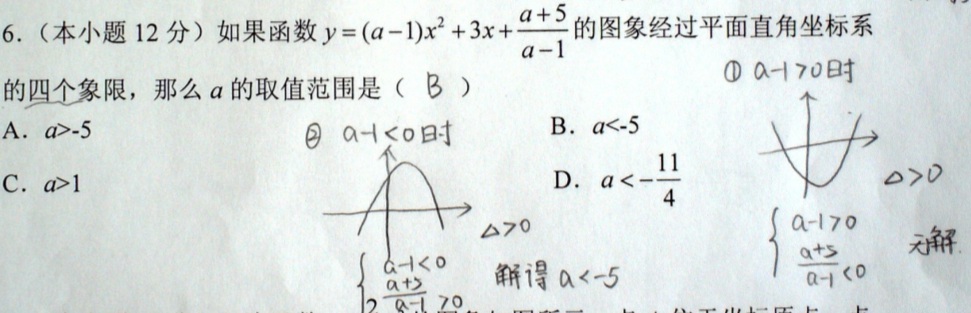 6.（本小题 12 分）如果函数 y=(a−1)x²+3x+\frac{a+5}{a−1} 的图象经过平面直角坐标系
的四个象限，那么 a 的取值范围是（ B ）
① a-1>0时
A. a>-5
② a-1<0时
B. a<-5
C. a>1
D. a<−\frac{11}{4}
△>0
△>0
a-1>0
\frac{a+5}{a-1}<0
无解.
a-1<0
\frac{a+5}{a-1}>0
解得 a<-5